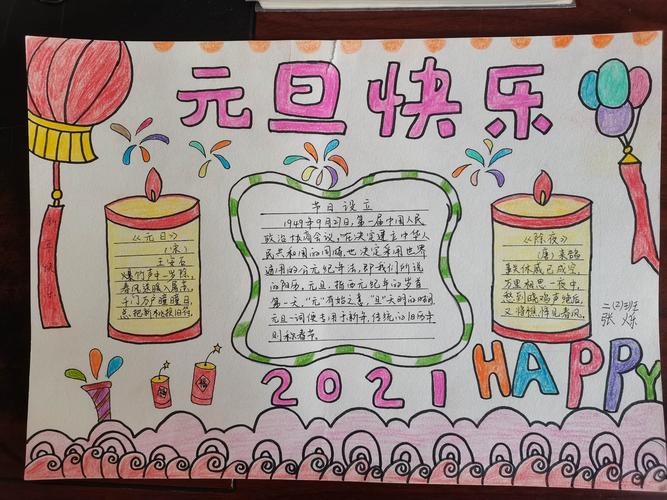 元旦快乐
新年快乐
《元日》
(宋)
王安石
爆竹声中一岁除,
春风送暖入屠苏,
千门万户曈曈日,
总把新桃换旧符
节日设立
1949年9月27日,第一届中国人民
政治协商会议,在决定建立中华人
民共和国的同时,也决定采用世界
通用的公元纪年法,即我们所说
的阳历,元旦,指西元纪年的岁首
第一天,"元"有始之意,"旦"天明的时间
元旦一词便专用于新年,传统的旧历年
则称春节。
《除夜》
(唐)来鹄
事关休戚已成空,
万里相思一夜中,
愁到晓鸡声绝后,
又将憔悴见春风。
二(2)班
张烁
福
2021
HAPPY